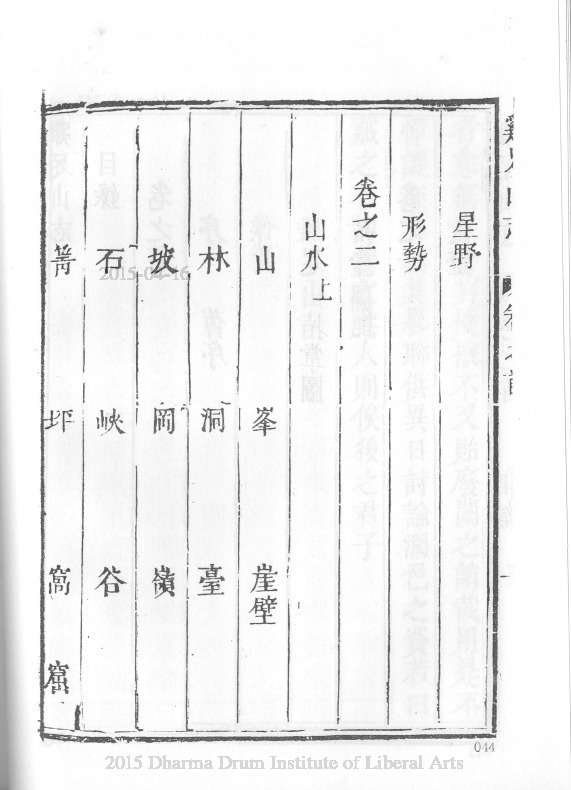 星野
形勢
卷之二
山水上
山 峯 崖壁
林 洞 臺
坡 岡 嶺
石 峽 谷
箐 坪 窩 窟
2015-04-16
044
2015 Dharma Drum Institute of Liberal Arts